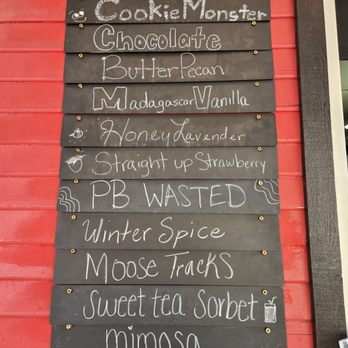 CookieMonster
Chocolate
Butter Pecan
Madagascar Vanilla
Honey Lavender
Straight up Strawberry
PB WASTED
Winter Spice
Moose Tracks
Sweet tea Sorbet
mimosa